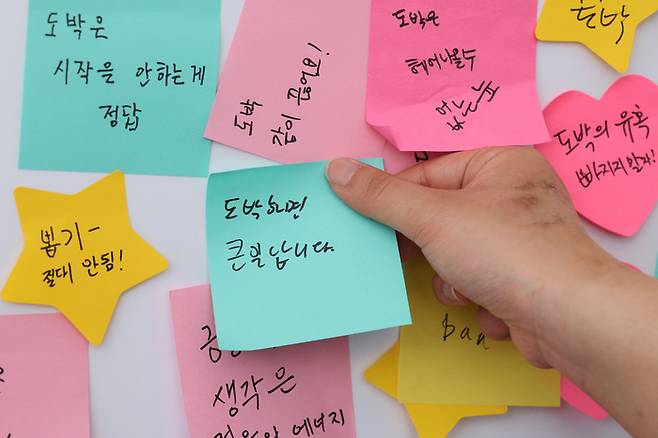 도박은
시작을 안하는게
정답
도박
깊은
도박은
헤어나올수
없는 늪
도박
도박의 유혹
빠지지말자!
뽑기-
절대 안됨!
도박하면
큰일납니다.
생각은
에너지